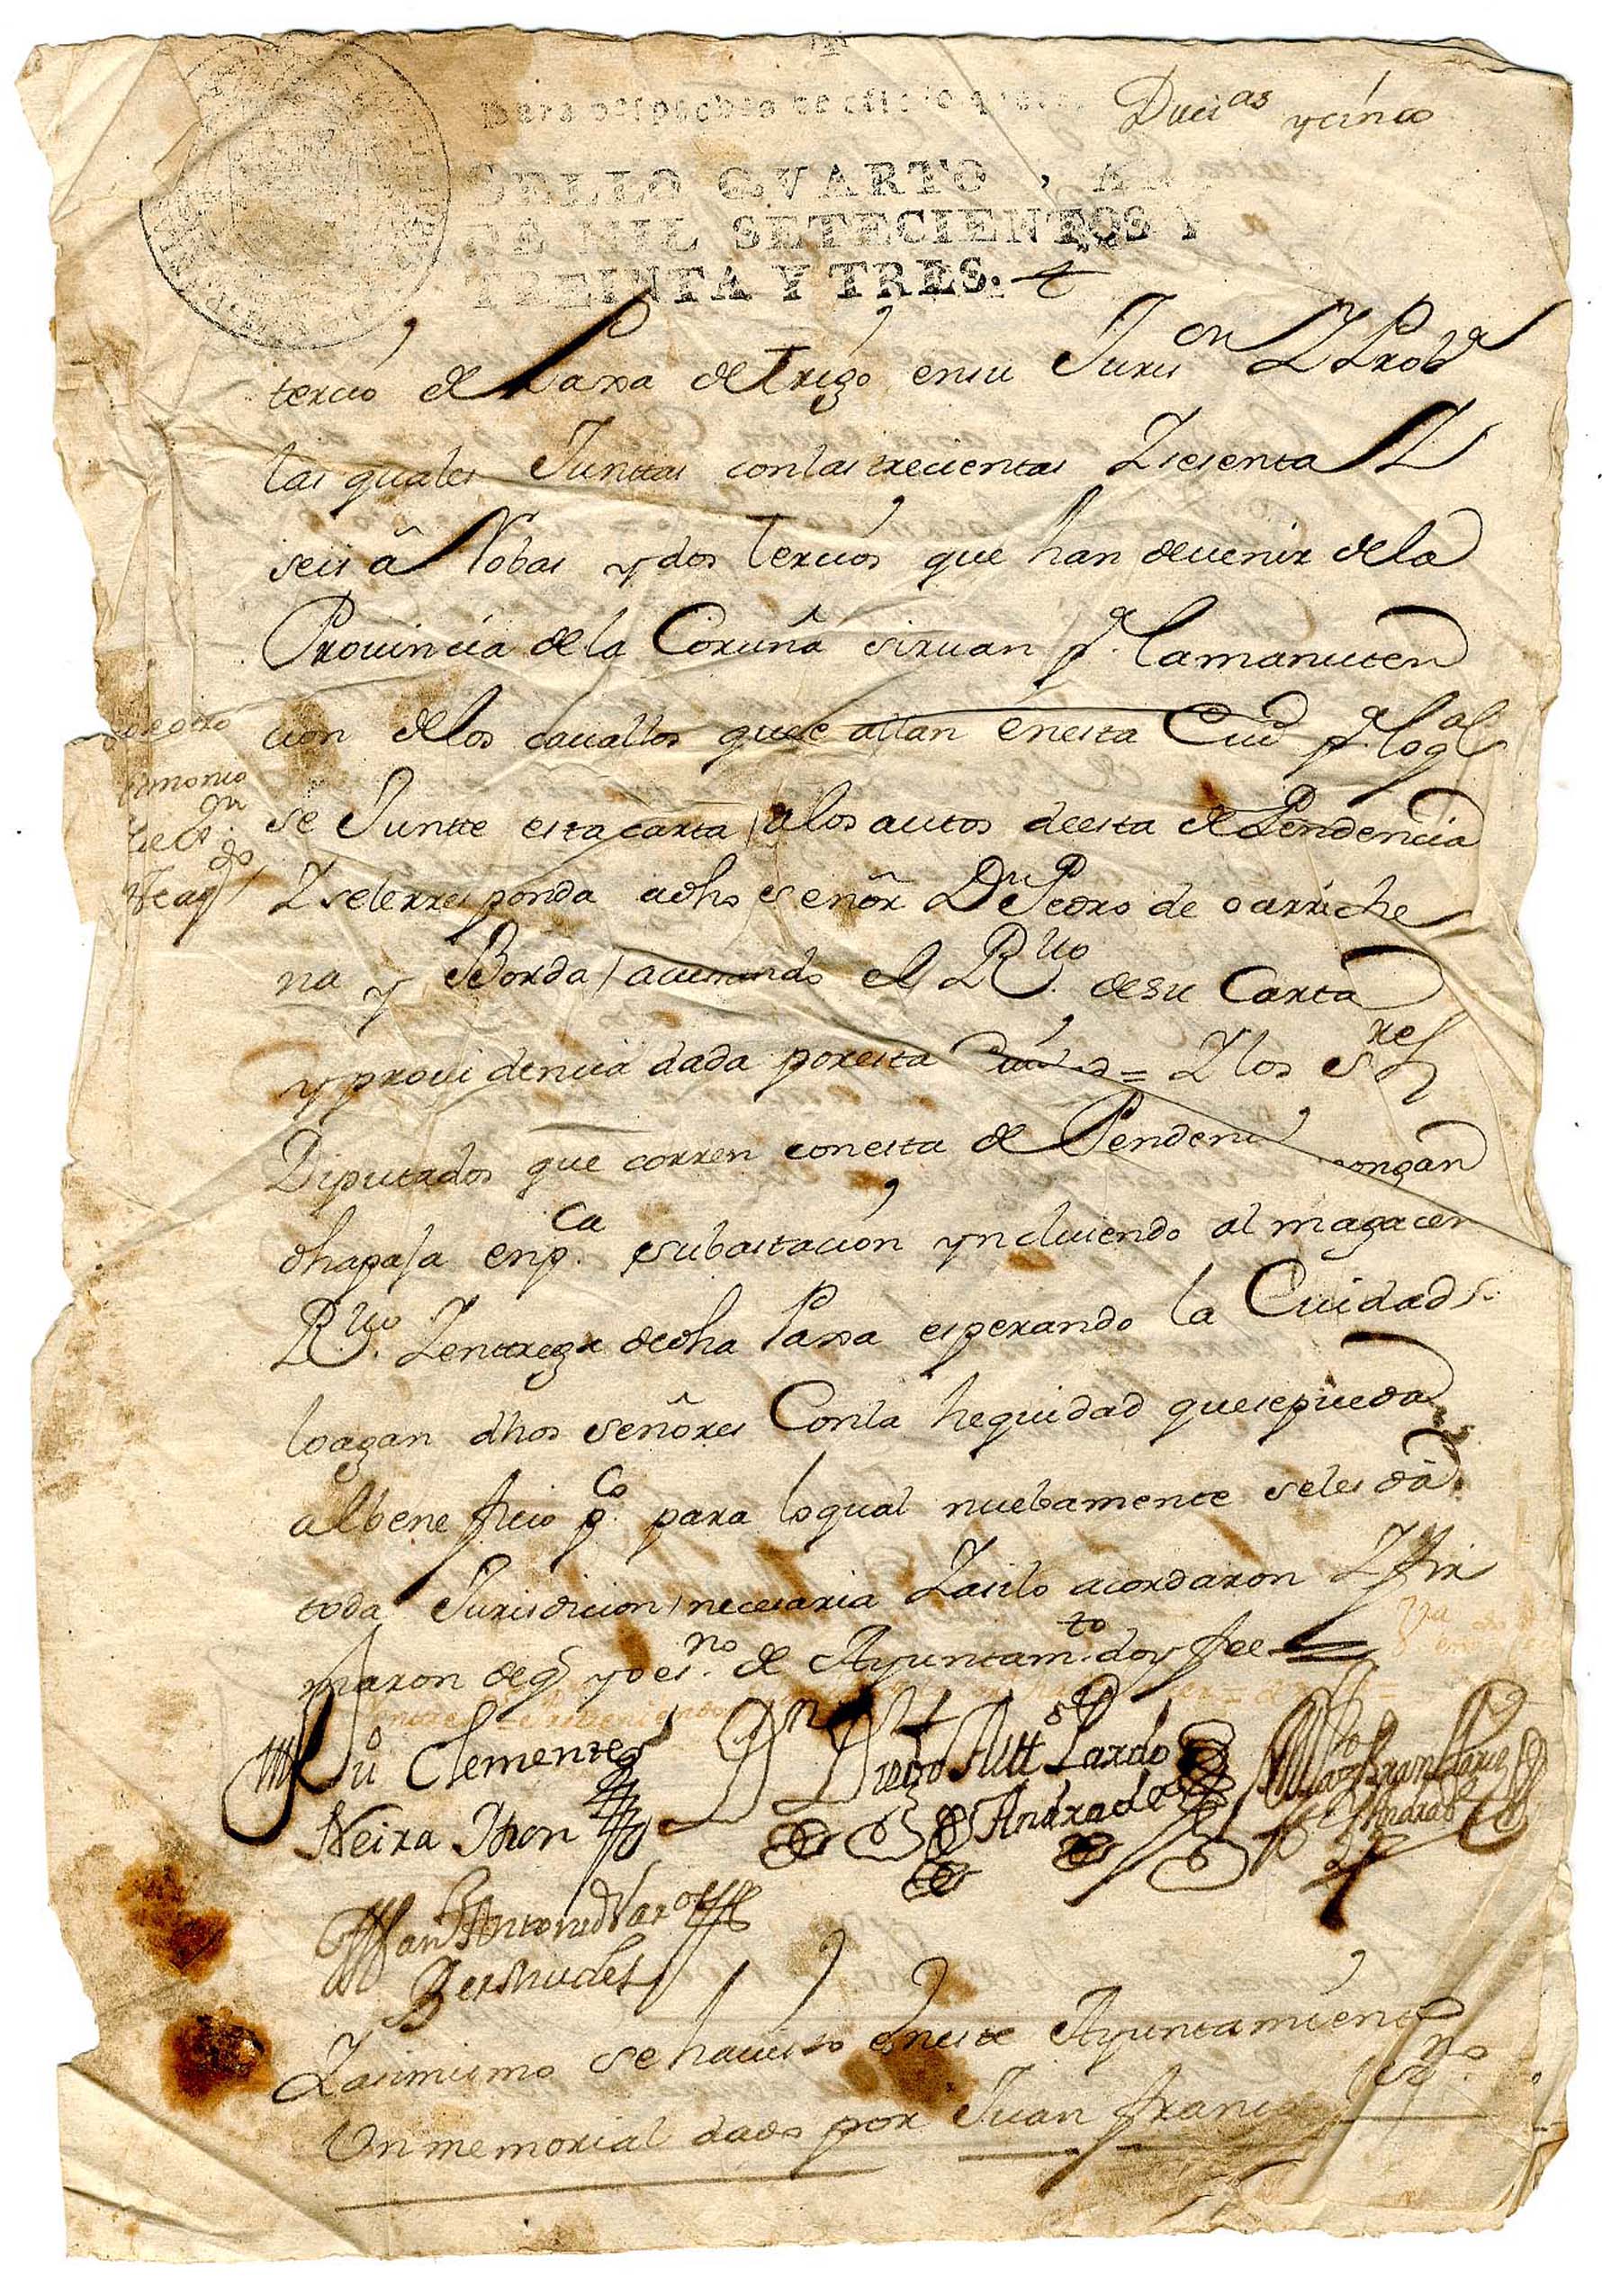 Para despachos de oficio
Ducias y cinco
SELLO QVARTO, A
DE MIL SETECIENTOS Y
TREINTA Y TRES. 4
tercio de Paxa de Trigo ensu Jurison Y Proba
las quales Junttas conlas trecientas Y sesenta Y
seis aRobas y dos tercios que han devenir dela
Provincia dela Coruña sirvan pa. lamanuten
cion delos cavallos que se allan enesta Ciud pa. loqal
se Juntte estacarta alos autos deesta dePendencia
Y selerresponda adho señor Dn Pedro de oarriche
na y Borda avisando el Rvo. desu Carta
y providencia dada poresta = Y los Sres
Diputados que corren conesta dePendencia pongan
dhapaja enpca. subastacion yncluiendo al magacen
Rvo. Y entrega dedha Paxa esperando la Cuidad
loagan dhos señores Conla hequidad quesepueda
albeneficio pco. para loqual nuebamente selesdá
toda Jurisdicion necesaria Y asilo acordaron Y fir
maron deq yo esno. de Ayuntamto. doy fee
Clemente
Neira Thon
Dn Diego Antt Pardo
Andrade
Antonio Var
Bermudes
Y asimismo sehavisto eneste Ayuntamiento
Un memorial dado por Juan franco esno.